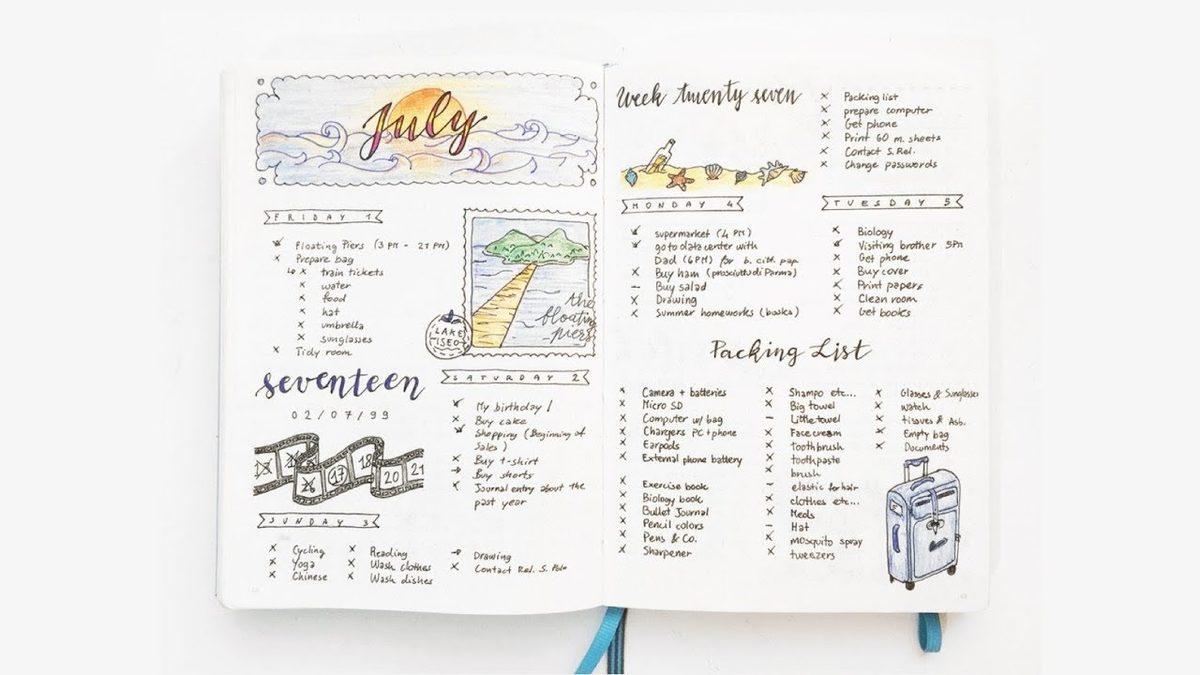 July
FRIDAY 1
Floating Piers (3 PM - 21 PM)
Prepare bag
train tickets
water
food
hat
umbrella
sunglasses
Tidy room
the
floating
piers
LAKE
ISEO
seventeen
02/07/99
16
17
18
20
21
SATURDAY 2
My birthday!
Buy cake
Shopping (Beginning of
Sales)
Buy t-shirt
Buy shorts
Journal entry about the
past year
SUNDAY 3
Cycling
Yoga
Chinese
Reading
Wash clothes
Wash dishes
Drawing
Contact Rel. S.
Week twenty seven
Packing list
prepare computer
Get phone
Print 60 m. sheets
Contact S. Rel.
Change passwords
MONDAY 4
supermarket (4 PM)
go to data center with
Dad (6PM) for b. citt. pap.
Buy ham (prosciutto di Parma)
Buy salad
Drawing
Summer homeworks (books)
TUESDAY 5
Biology
Visiting brother 5PM
Get phone
Buy cover
Print papers
Clean room
Get books
Packing List
Camera + batteries
Micro SD
Computer w/ bag
Chargers PC + phone
Earpods
External phone battery
Exercise book
Biology book
Bullet Journal
Pencil colors
Pens & Co.
Sharpener
Shampo etc...
Big towel
Little towel
Face cream
toothbrush
toothpaste
brush
elastic for hair
clothes etc...
Meds
Hat
mosquito spray
tweezers
Glasses & Sunglasses
Watch
tissues & Ass.
Empty bag
Documents